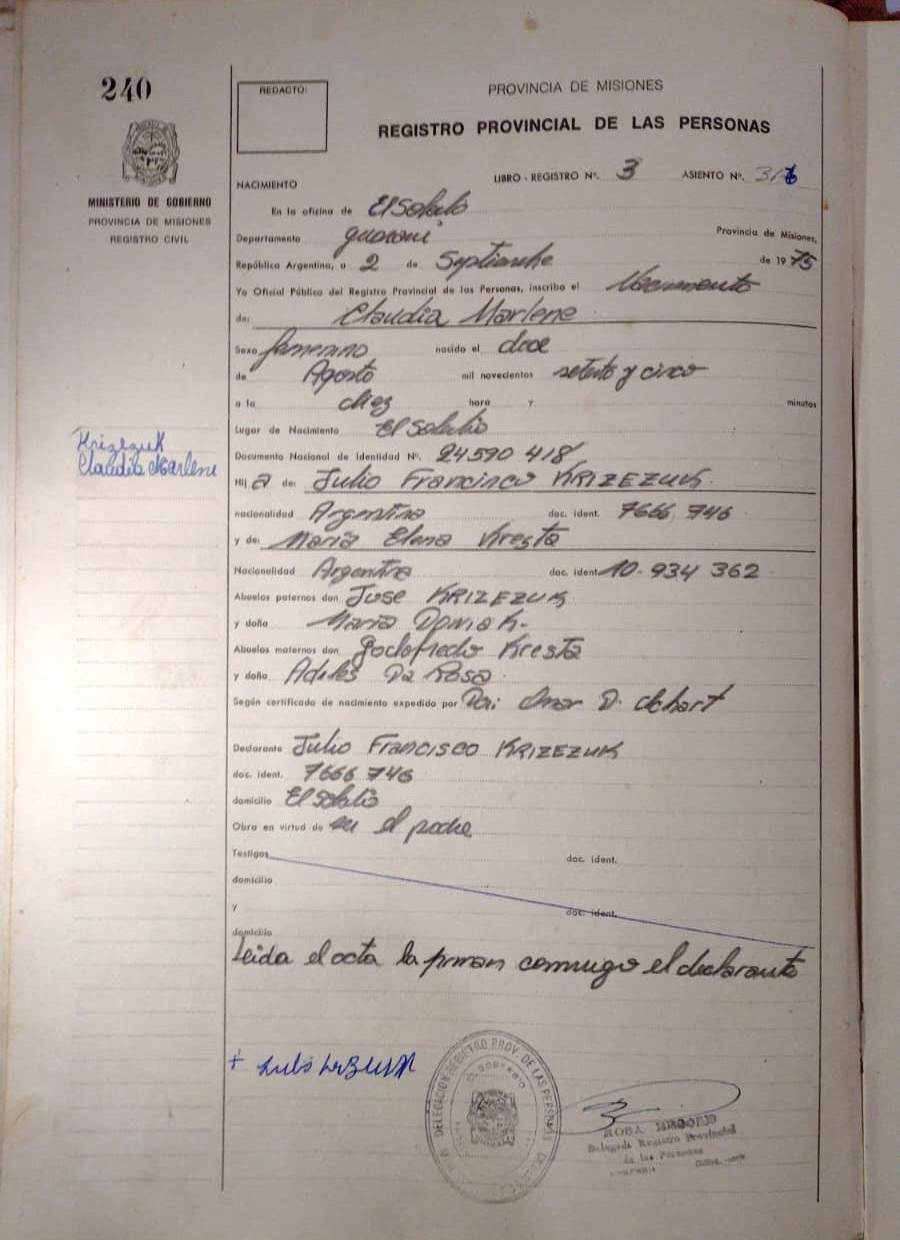 240
REDACTO:
PROVINCIA DE MISIONES
REGISTRO PROVINCIAL DE LAS PERSONAS
MINISTERIO DE GOBIERNO
PROVINCIA DE MISIONES
REGISTRO CIVIL
LIBRO - REGISTRO Nº. 3 ASIENTO Nº.
NACIMIENTO
En la oficina de El Soberbio
Departamento Guarani Provincia de Misiones,
República Argentina, a 2 de Septiembre de 1975
Yo Oficial Público del Registro Provincial de las Personas, inscribo el Nacimiento
de: Claudia Marlene
Sexo femenino nacido el doce
de Agosto mil novecientos setenta y cinco
a la diez hora y minutos
Lugar de Nacimiento El Soberbio
Krizezuk
Claudia Marlene
Documento Nacional de Identidad Nº. 24590 418
Hij a de: Julio Francisco KRIZEZUK
nacionalidad Argentina doc. ident. 7666 746
y de: Maria Elena Kresta
Nacionalidad Argentina doc. ident. 10-934 362
Abuelos paternos don Jose KRIZEZUK
y doña Maria
Abuelos maternos don Godofredo Kresta
y doña Da Rosa
Según certificado de nacimiento expedido por Omar D.
Declarante Julio Francisco KRIZEZUK
doc. ident. 7666 746
domicilio El Soberbio
Obra en virtud de ser el padre
Testigos doc. ident.
domicilio
y doc. ident.
domicilio
Leida el acta la firman conmigo el declarante
DELEGACION REGISTRO PROV. DE LAS PERSONAS
EL SOBERBIO
ROSA
Delegada Registro Provincial
de las Personas